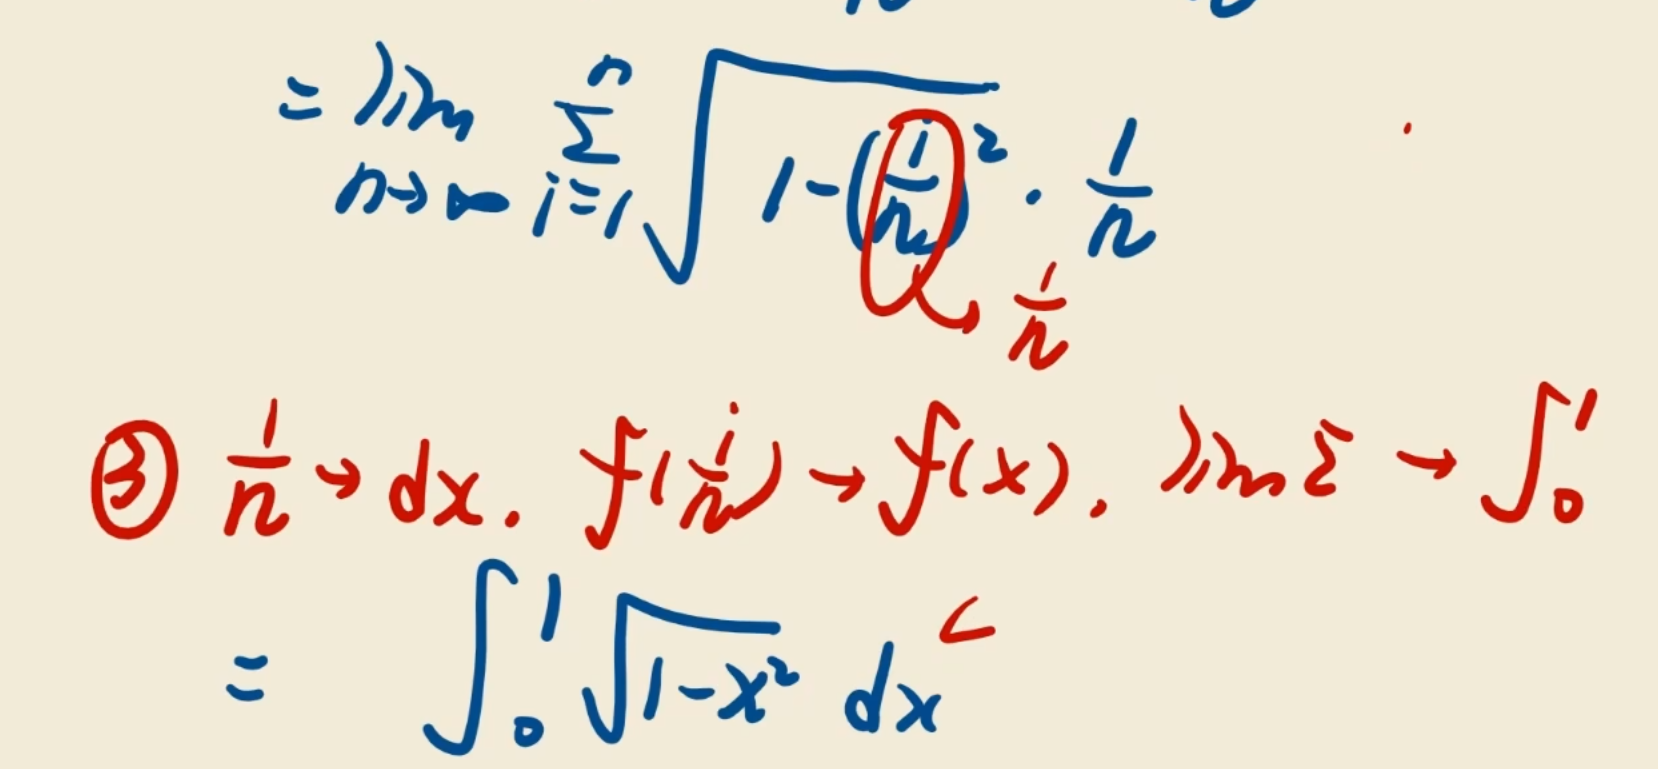 = lim n→∞ Σ i=1 n √(1-(i/n)²) · 1/n
i/n
③ 1/n → dx. f(i/n) → f(x). lim Σ → ∫₀¹
= ∫₀¹ √(1-x²) dx